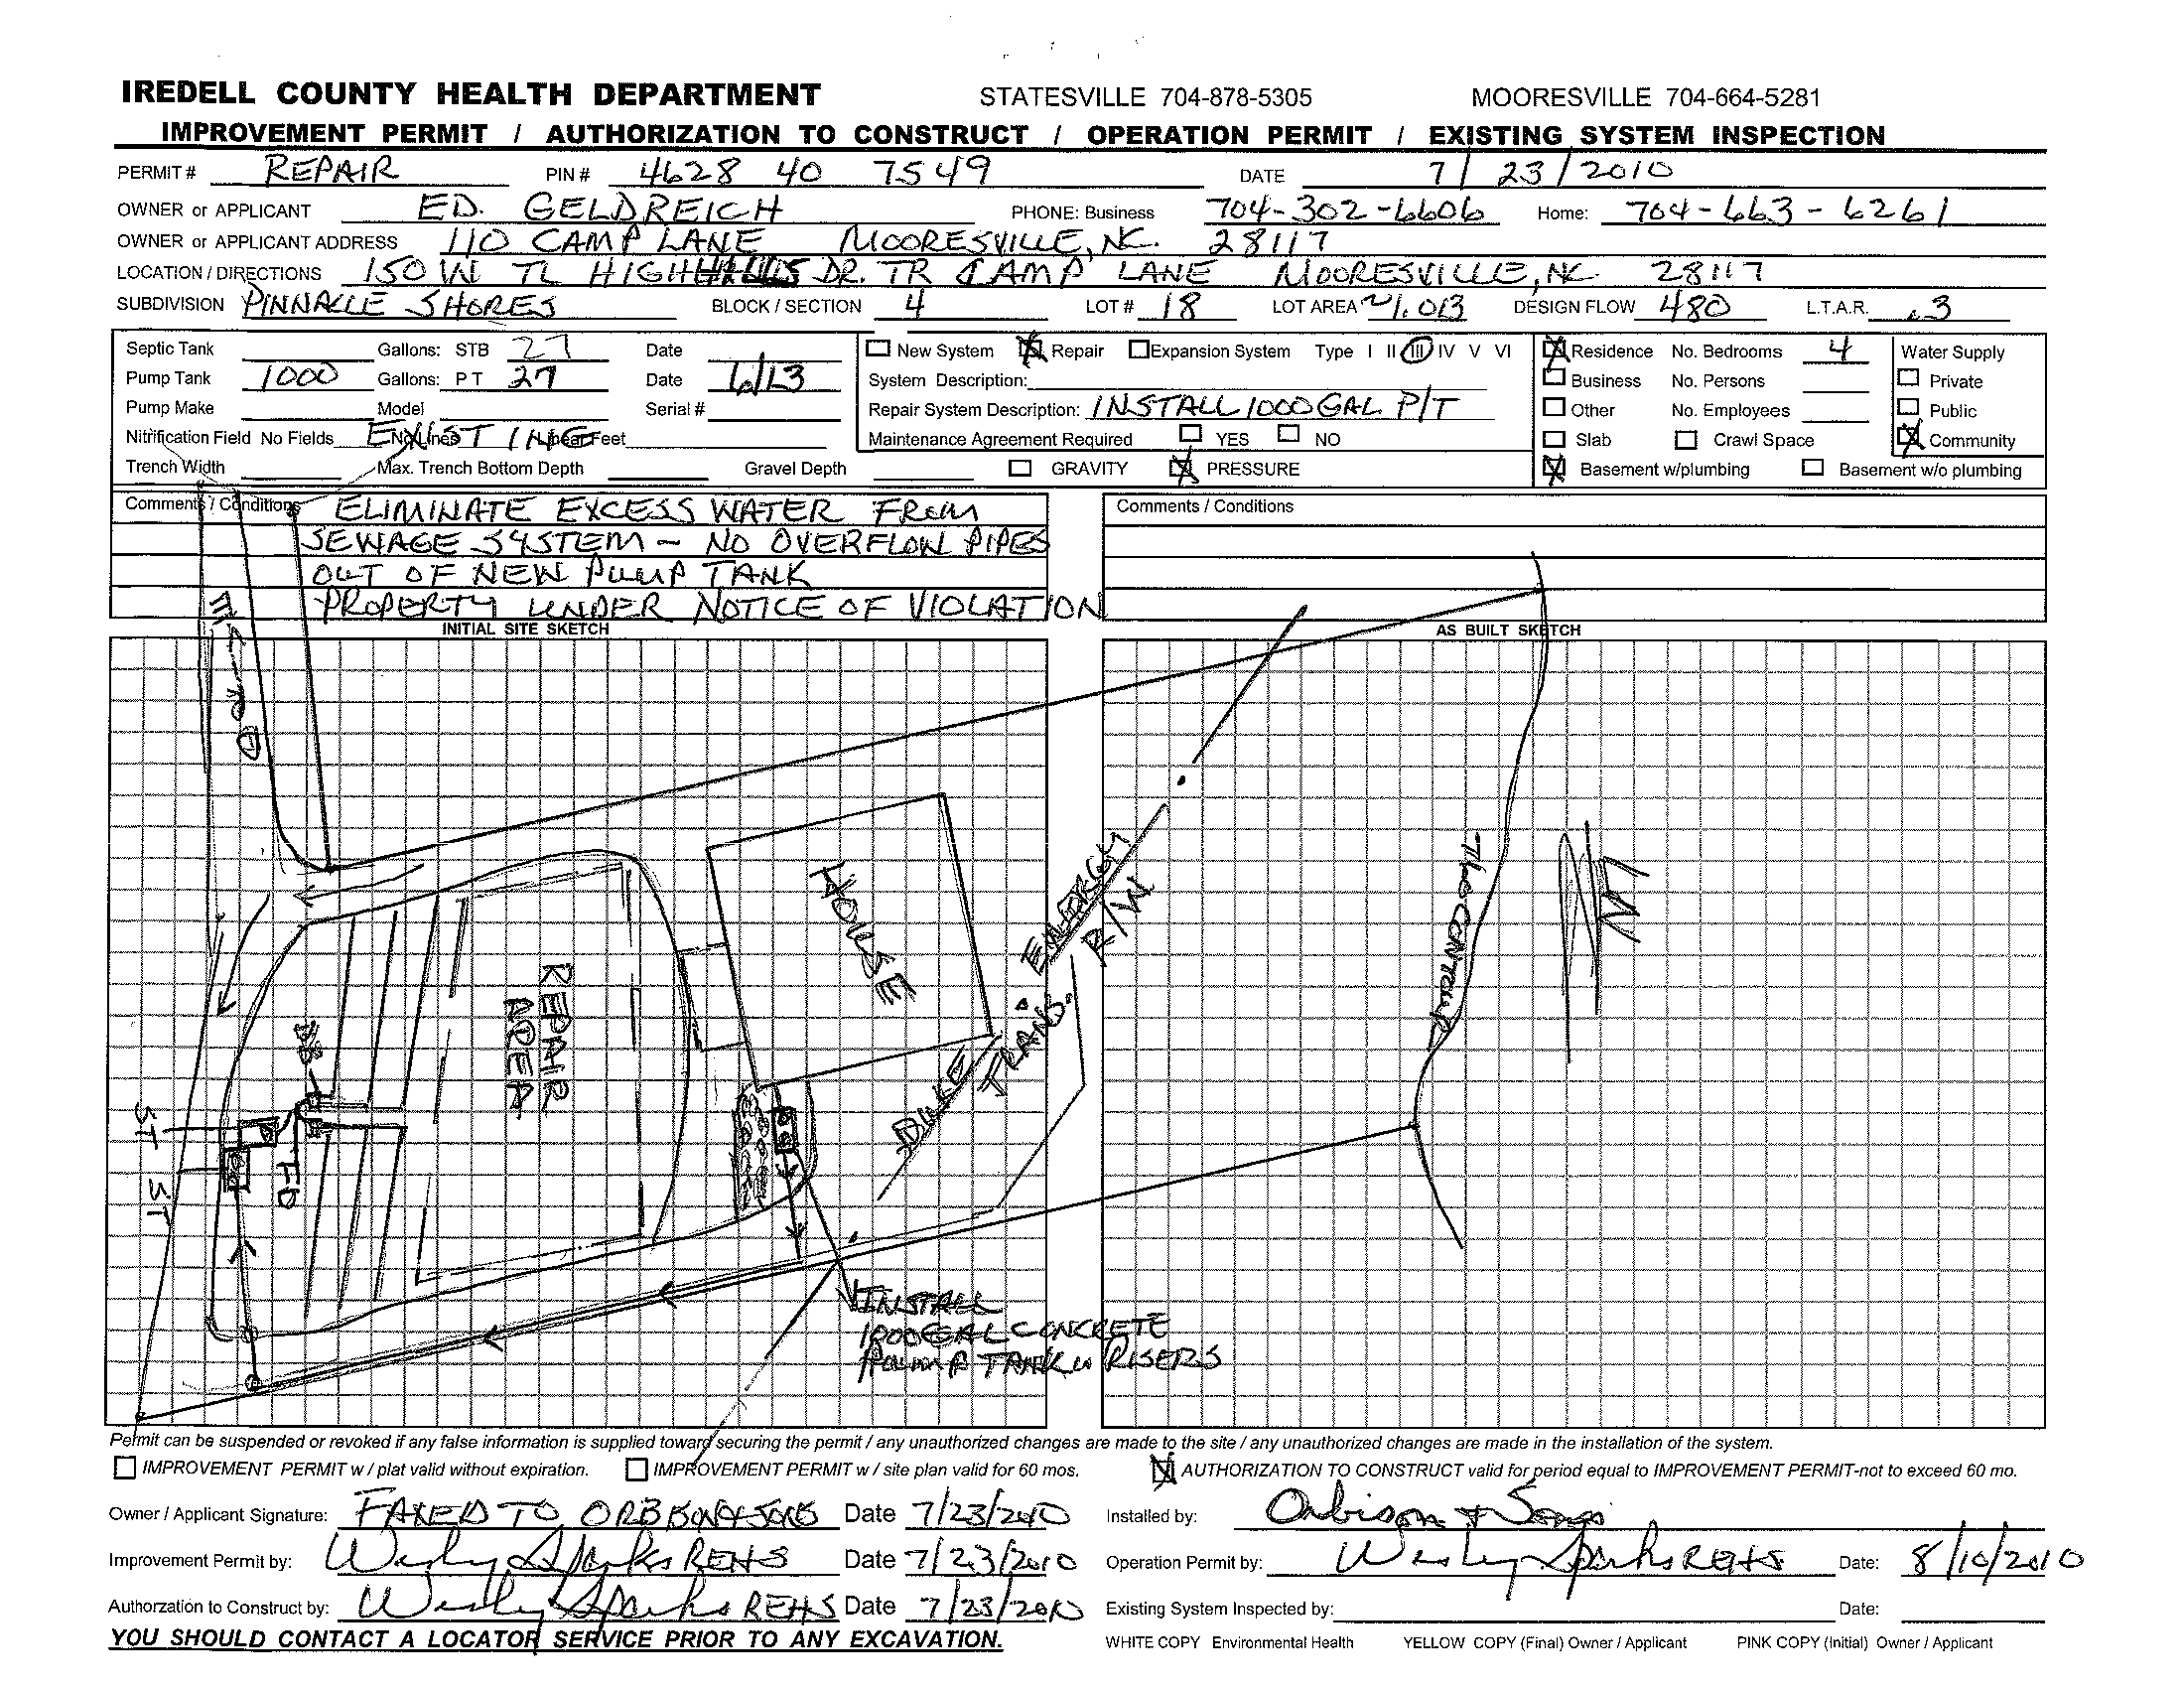 IREDELL COUNTY HEALTH DEPARTMENT STATESVILLE 704-878-5305 MOORESVILLE 704-664-5281
IMPROVEMENT PERMIT / AUTHORIZATION TO CONSTRUCT / OPERATION PERMIT / EXISTING SYSTEM INSPECTION
PERMIT # REPAIR PIN # 4628 40 7549 DATE 7/23/2010
OWNER or APPLICANT ED. GELDREICH PHONE: Business 704-302-6606 Home: 704-663-6261
OWNER or APPLICANT ADDRESS 110 CAMP LANE MOORESVILLE, NC. 28117
LOCATION / DIRECTIONS 150 W TL HIGH DR. TR CAMP LANE MOORESVILLE, NC. 28117
SUBDIVISION PINNACLE SHORES BLOCK / SECTION 4 LOT # 18 LOT AREA ~1.013 DESIGN FLOW 480 L.T.A.R. .3
Septic Tank Gallons: STB 27 Date New System Repair Expansion System Type I II III IV V VI Residence No. Bedrooms 4 Water Supply
Pump Tank 1000 Gallons: PT 27 Date 6/13 System Description: Business No. Persons Private
Pump Make Model Serial # Repair System Description: INSTALL 1000 GAL P/T Other No. Employees Public
Nitrification Field No Fields No Lines Linear Feet EXISTING Maintenance Agreement Required YES NO Slab Crawl Space Community
Trench Width Max. Trench Bottom Depth Gravel Depth GRAVITY PRESSURE Basement w/plumbing Basement w/o plumbing
Comments / Conditions ELIMINATE EXCESS WATER FROM Comments / Conditions
SEWAGE SYSTEM - NO OVERFLOW PIPES
OUT OF NEW PUMP TANK
PROPERTY UNDER NOTICE OF VIOLATION
INITIAL SITE SKETCH AS BUILT SKETCH
HOUSE
ENERGY
R/W
REPAIR
AREA
DUKE
TRANS.
DB
ST
ST
FD
INSTALL
1000 GAL CONCRETE
PUMP TANK W RISERS
Permit can be suspended or revoked if any false information is supplied toward securing the permit / any unauthorized changes are made to the site / any unauthorized changes are made in the installation of the system.
IMPROVEMENT PERMIT w / plat valid without expiration. IMPROVEMENT PERMIT w / site plan valid for 60 mos. AUTHORIZATION TO CONSTRUCT valid for period equal to IMPROVEMENT PERMIT-not to exceed 60 mo.
Owner / Applicant Signature: FAXED TO Date 7/23/2010 Installed by: Orbison + Sons
Improvement Permit by: Wesley Sparks REHS Date 7/23/2010 Operation Permit by: Wesley Sparks REHS Date: 8/10/2010
Authorzation to Construct by: Wesley Sparks REHS Date 7/23/2010 Existing System Inspected by: Date:
YOU SHOULD CONTACT A LOCATOR SERVICE PRIOR TO ANY EXCAVATION. WHITE COPY Environmental Health YELLOW COPY (Final) Owner / Applicant PINK COPY (Initial) Owner / Applicant